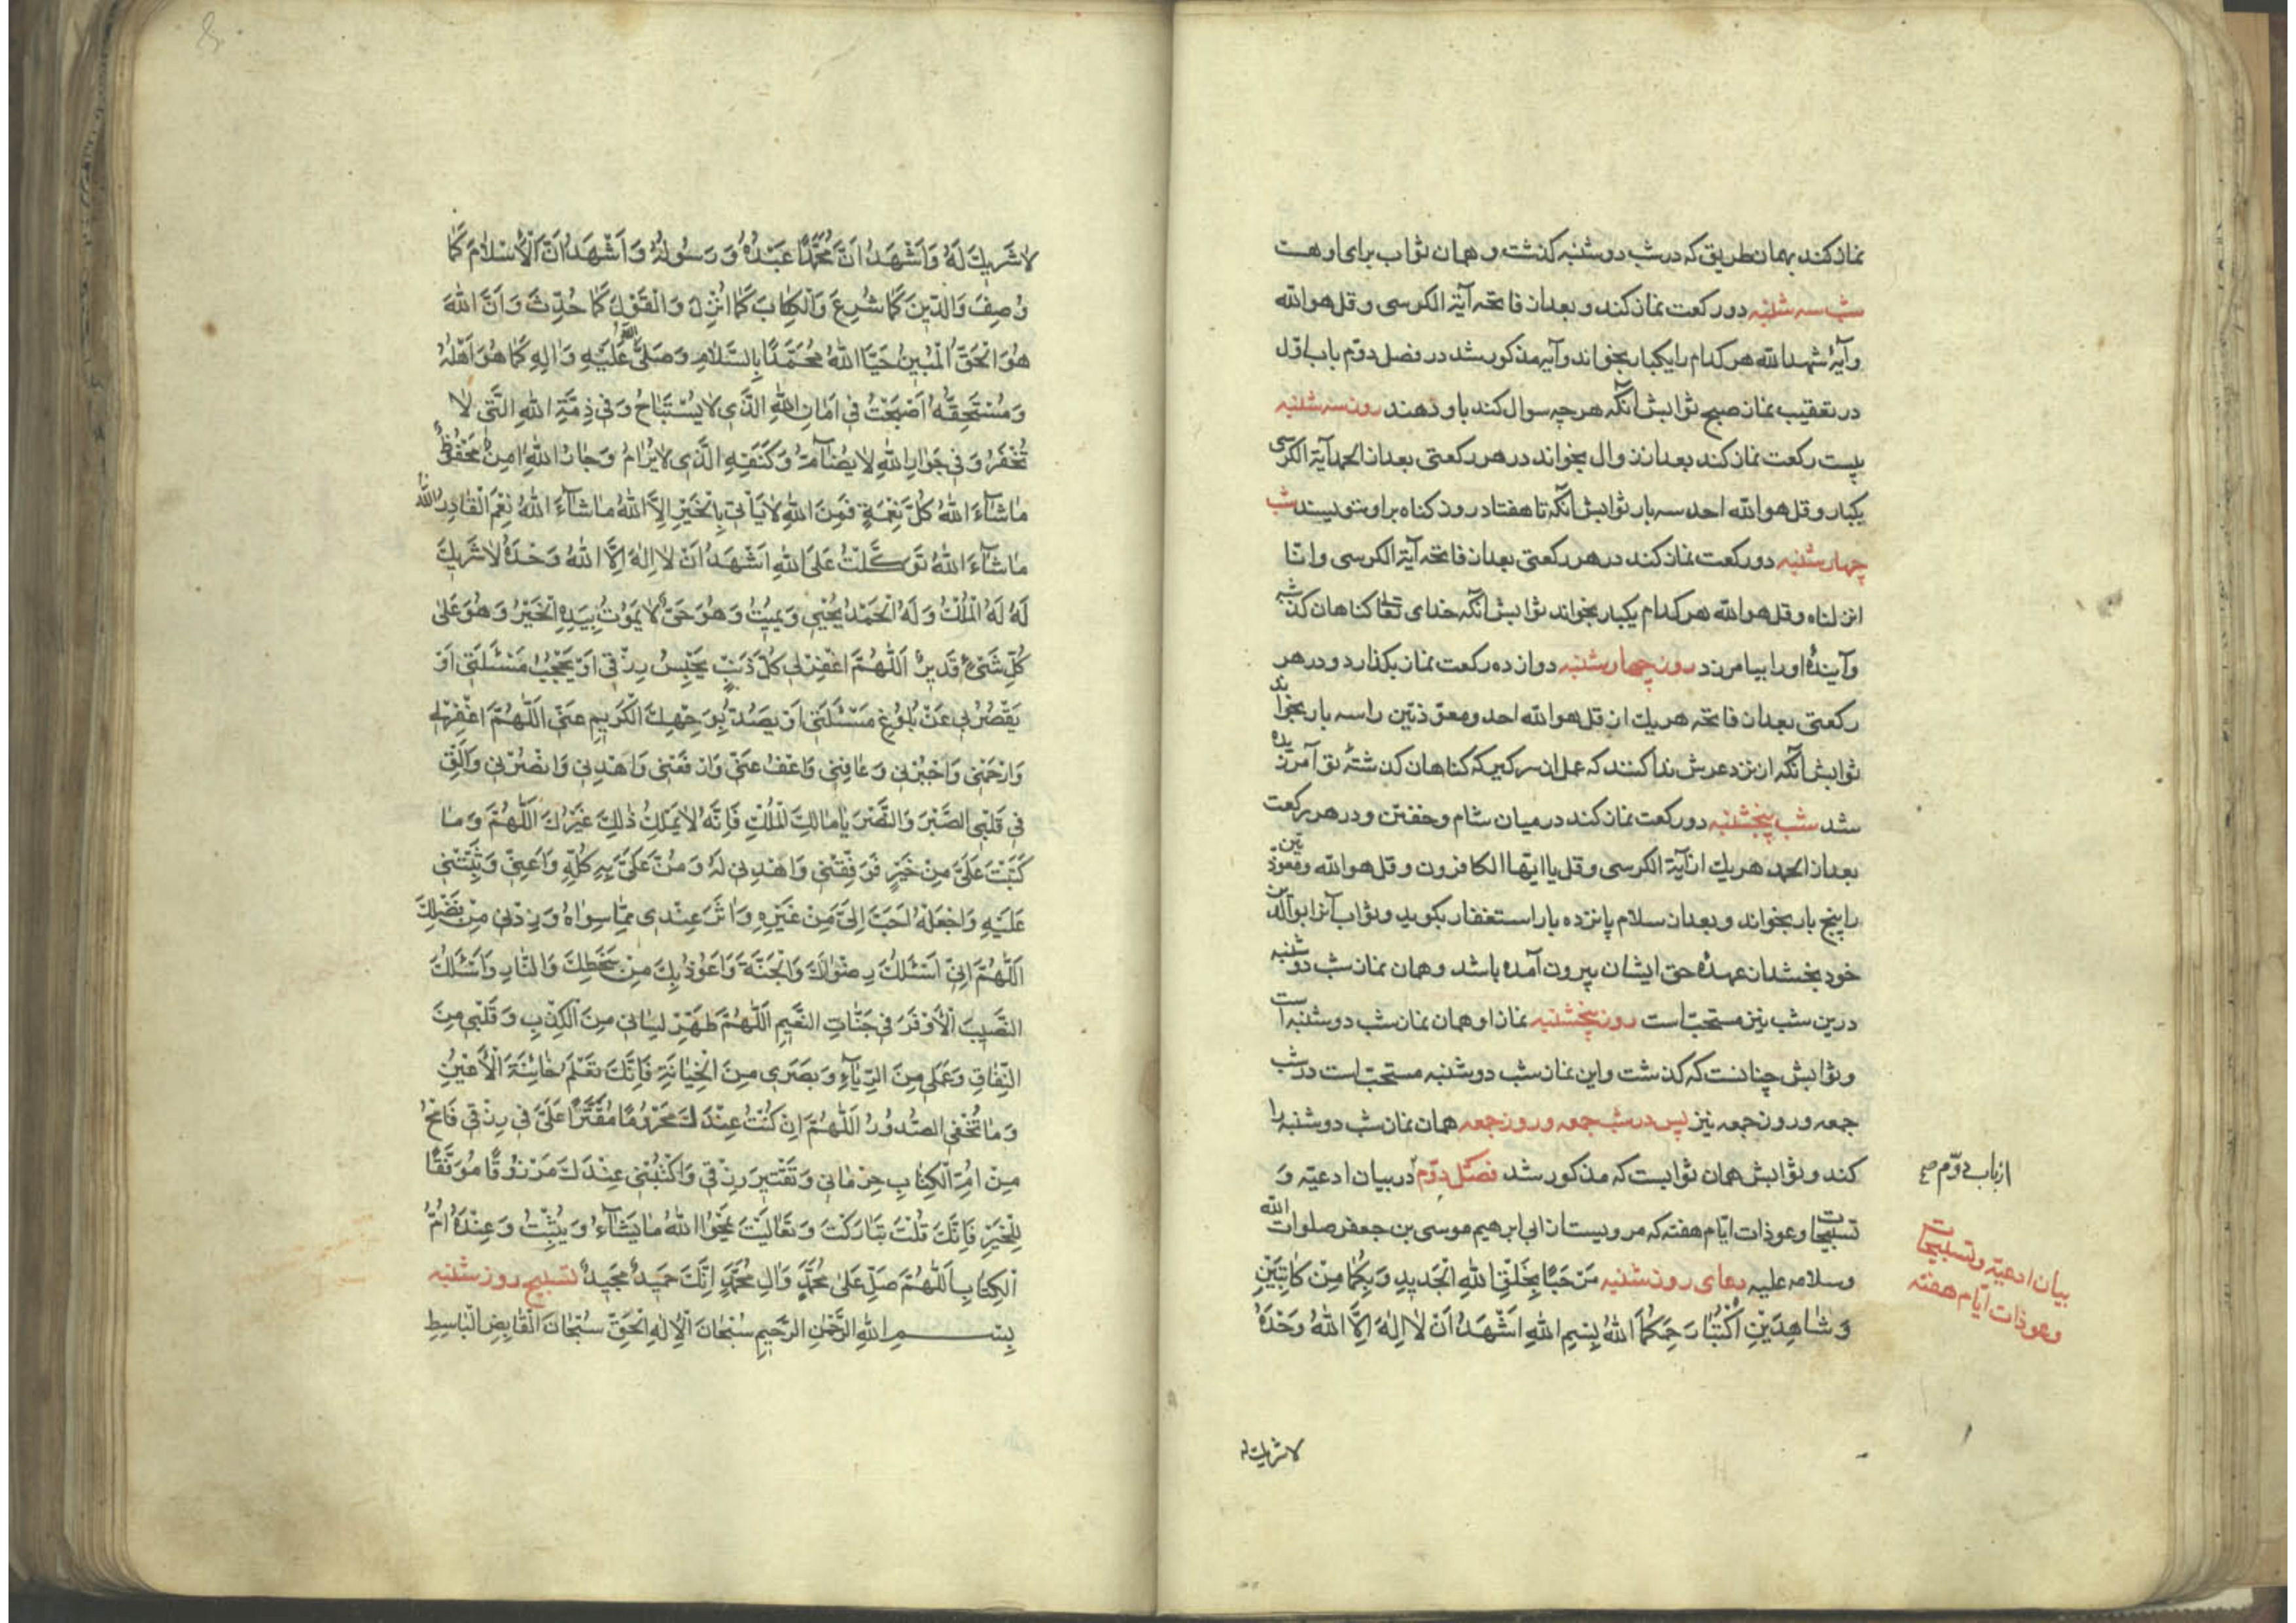 نماز کند بهمان طریق که در شب دوشنبه گذشت و همان ثواب برای او هست
شب سه شنبه دو رکعت نماز کند و بعد از فاتحه آیة الکرسی و قل هو الله
و آیهٔ شهد الله هر کدام را یکبار بخواند و آیه مذکور شد در فصل دوّم باب اوّل
در تعقیب نماز صبح ثوابش آنکه هر چه سوال کند باو دهند روز سه شنبه
بیست رکعت نماز کند بعد از زوال بخواند در هر رکعتی بعد از الحمد آیة الکرسی
یکبار و قل هو الله احد سه بار ثوابش آنکه تا هفتاد روز گناه بر او ننویسند شب
چهارشنبه دو رکعت نماز کند در هر رکعتی بعد از فاتحه آیة الکرسی و انّا
انزلناه و قل هو الله هر کدام یکبار بخواند ثوابش آنکه خدای تعالی گناهان گذشته
و آیندهٔ او را بیامرزد روز چهارشنبه دوازده رکعت نماز بگذارد و در هر
رکعتی بعد از فاتحه هر یک از قل هو الله احد و معوّذتین را سه بار بخواند
ثوابش آنکه از نزد عرش ندا کنند که عمل از سر گیر که گناهان گذشتهٔ تو آمرزیده
شد شب پنجشنبه دو رکعت نماز کند در میان شام و خفتن و در هر رکعت
بعد از الحمد هر یک از آیة الکرسی و قل یا ایّها الکافرون و قل هو الله و معوّذتین
را پنج بار بخواند و بعد از سلام پانزده بار استغفار بگوید و ثواب آنرا بوالدین
خود بخشد از عهدهٔ حق ایشان بیرون آمده باشد و همان نماز شب دوشنبه
درین شب نیز مستحبّ است روز پنجشنبه نماز او همان نماز شب دوشنبه است
و ثوابش چنانست که گذشت و این نماز شب دوشنبه مستحبّ است در شب
جمعه و روز جمعه نیز پس در شب جمعه و روز جمعه همان نماز شب دوشنبه را
کند و ثوابش همان ثوابست که مذکور شد فصل دوّم در بیان ادعیّه و
تسبیحات و عوذات ایّام هفته که مرویست از ابی ابرهیم موسی بن جعفر صلوات الله
و سلامه علیه دعای روز شنبه مَرْحَبًا بِخَلْقِ اللهِ الْجَدِیدِ وَبِکُمَا مِنْ کَاتِبَیْنِ
وَشَاهِدَیْنِ اُکْتُبَا رَحِمَکُمَا اللهُ بِسْمِ اللهِ اَشْهَدُ اَنْ لَا اِلٰهَ اِلَّا اللهُ وَحْدَهُ
لا شریک له
از باب دوّم
بیان ادعیّه و تسبیحات
و عوذات ایّام هفته
لَا شَرِیكَ لَهُ وَاَشْهَدُ اَنَّ مُحَمَّدًا عَبْدُهُ وَرَسُولُهُ وَاَشْهَدُ اَنَّ الْاِسْلَامَ کَمَا
وُصِفَ وَالدِّینَ کَمَا شُرِعَ وَالْکِتَابَ کَمَا اُنْزِلَ وَالْقَوْلَ کَمَا حُدِّثَ وَاَنَّ اللهَ
هُوَ الْحَقُّ الْمُبِینُ حَیَّا اللهُ مُحَمَّدًا بِالسَّلَامِ وَصَلَّی اللهُ عَلَیْهِ وَاٰلِهِ کَمَا هُوَ اَهْلُهُ
وَمُسْتَحِقُّهُ اَصْبَحْتُ فِی اَمَانِ اللهِ الَّذِی لَا یُسْتَبَاحُ وَفِی ذِمَّةِ اللهِ الَّتِی لَا
تُخْفَرُ وَفِی جِوَارِ اللهِ لَا یُضَامُ وَکَنَفِهِ الَّذِی لَا یُرَامُ وَجَارُ اللهِ اٰمِنٌ مَحْفُوظٌ
مَا شَاءَ اللهُ کُلُّ نِعْمَةٍ فَمِنَ اللهِ لَا یَأْتِی بِالْخَیْرِ اِلَّا اللهُ مَا شَاءَ اللهُ نِعْمَ الْقَادِرُ اللهُ
مَا شَاءَ اللهُ تَوَکَّلْتُ عَلَی اللهِ اَشْهَدُ اَنْ لَا اِلٰهَ اِلَّا اللهُ وَحْدَهُ لَا شَرِیكَ
لَهُ لَهُ الْمُلْكُ وَلَهُ الْحَمْدُ یُحْیِی وَیُمِیتُ وَهُوَ حَیٌّ لَا یَمُوتُ بِیَدِهِ الْخَیْرُ وَهُوَ عَلٰی
کُلِّ شَیْءٍ قَدِیرٌ اَللّٰهُمَّ اغْفِرْ لِی کُلَّ ذَنْبٍ یَحْبِسُ رِزْقِی اَوْ یَحْجُبُ مَسْئَلَتِی اَوْ
یَقْصُرُ بِی عَنْ بُلُوغِ مَسْئَلَتِی اَوْ یَصُدُّ بِوَجْهِكَ الْکَرِیمِ عَنِّی اَللّٰهُمَّ اغْفِرْ لِی
وَارْحَمْنِی وَاجْبُرْنِی وَعَافِنِی وَاعْفُ عَنِّی وَارْفَعْنِی وَاهْدِنِی وَانْصُرْنِی وَاَلْقِ
فِی قَلْبِی الصَّبْرَ وَالنَّصْرَ یَا مَالِكَ الْمُلْكِ فَاِنَّهُ لَا یَمْلِكُ ذٰلِكَ غَیْرُكَ اَللّٰهُمَّ وَمَا
کَتَبْتَ عَلَیَّ مِنْ خَیْرٍ فَوَفِّقْنِی وَاهْدِنِی لَهُ وَمُنَّ عَلَیَّ بِهِ کُلِّهِ وَاَعِنِّی وَثَبِّتْنِی
عَلَیْهِ وَاجْعَلْهُ اَحَبَّ اِلَیَّ مِنْ غَیْرِهِ وَاٰثَرَ عِنْدِی مِمَّا سِوَاهُ وَزِدْنِی مِنْ فَضْلِكَ
اَللّٰهُمَّ اِنِّی اَسْئَلُكَ رِضْوَانَكَ وَالْجَنَّةَ وَاَعُوذُ بِكَ مِنْ سَخَطِكَ وَالنَّارِ وَاَسْئَلُكَ
النَّصِیبَ الْاَوْفَرَ فِی جَنَّاتِ النَّعِیمِ اَللّٰهُمَّ طَهِّرْ لِسَانِی مِنَ الْکِذْبِ وَقَلْبِی مِنَ
النِّفَاقِ وَعَمَلِی مِنَ الرِّیَاءِ وَبَصَرِی مِنَ الْخِیَانَةِ فَاِنَّكَ تَعْلَمُ خَائِنَةَ الْاَعْیُنِ
وَمَا تُخْفِی الصُّدُورُ اَللّٰهُمَّ اِنْ کُنْتُ عِنْدَكَ مَحْرُومًا مُقَتَّرًا عَلَیَّ فِی رِزْقِی فَامْحُ
مِنْ اُمِّ الْکِتَابِ حِرْمَانِی وَتَقْتِیرَ رِزْقِی وَاکْتُبْنِی عِنْدَكَ مَرْزُوقًا مُوَفَّقًا
لِلْخَیْرِ فَاِنَّكَ قُلْتَ تَبَارَکْتَ وَتَعَالَیْتَ یَمْحُوا اللهُ مَا یَشَاءُ وَیُثْبِتُ وَعِنْدَهُ اُمُّ
الْکِتَابِ اَللّٰهُمَّ صَلِّ عَلٰی مُحَمَّدٍ وَاٰلِ مُحَمَّدٍ اِنَّكَ حَمِیدٌ مَجِیدٌ تسبیح روز شنبه
بِسْمِ اللهِ الرَّحْمٰنِ الرَّحِیمِ سُبْحَانَ الْاِلٰهِ الْحَقِّ سُبْحَانَ الْقَابِضِ الْبَاسِطِ